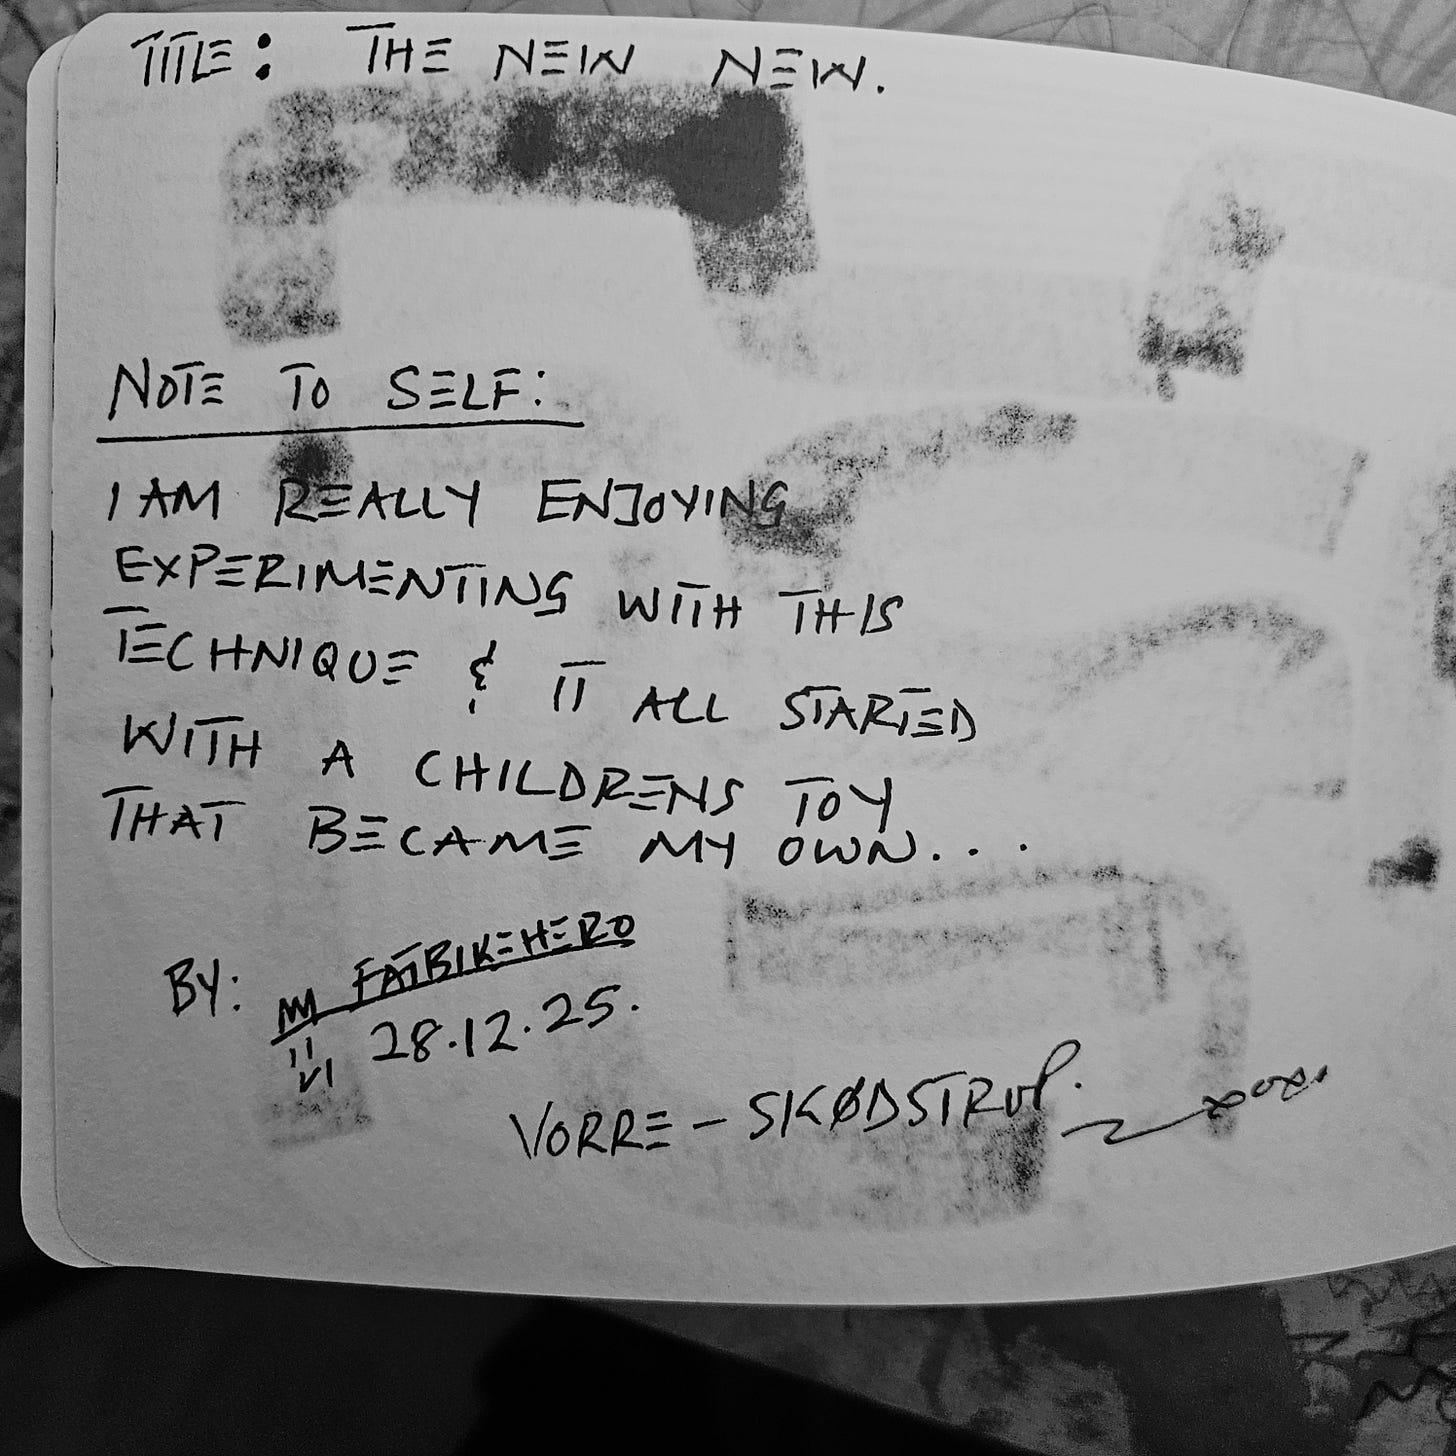 TITLE: THE NEW NEW.
NOTE TO SELF:
I AM REALLY ENJOYING
EXPERIMENTING WITH THIS
TECHNIQUE & IT ALL STARTED
WITH A CHILDRENS TOY
THAT BECAME MY OWN...
BY: FATBIKEHERO
28.12.25.
VORRE - SKØDSTRUP. xoxo.